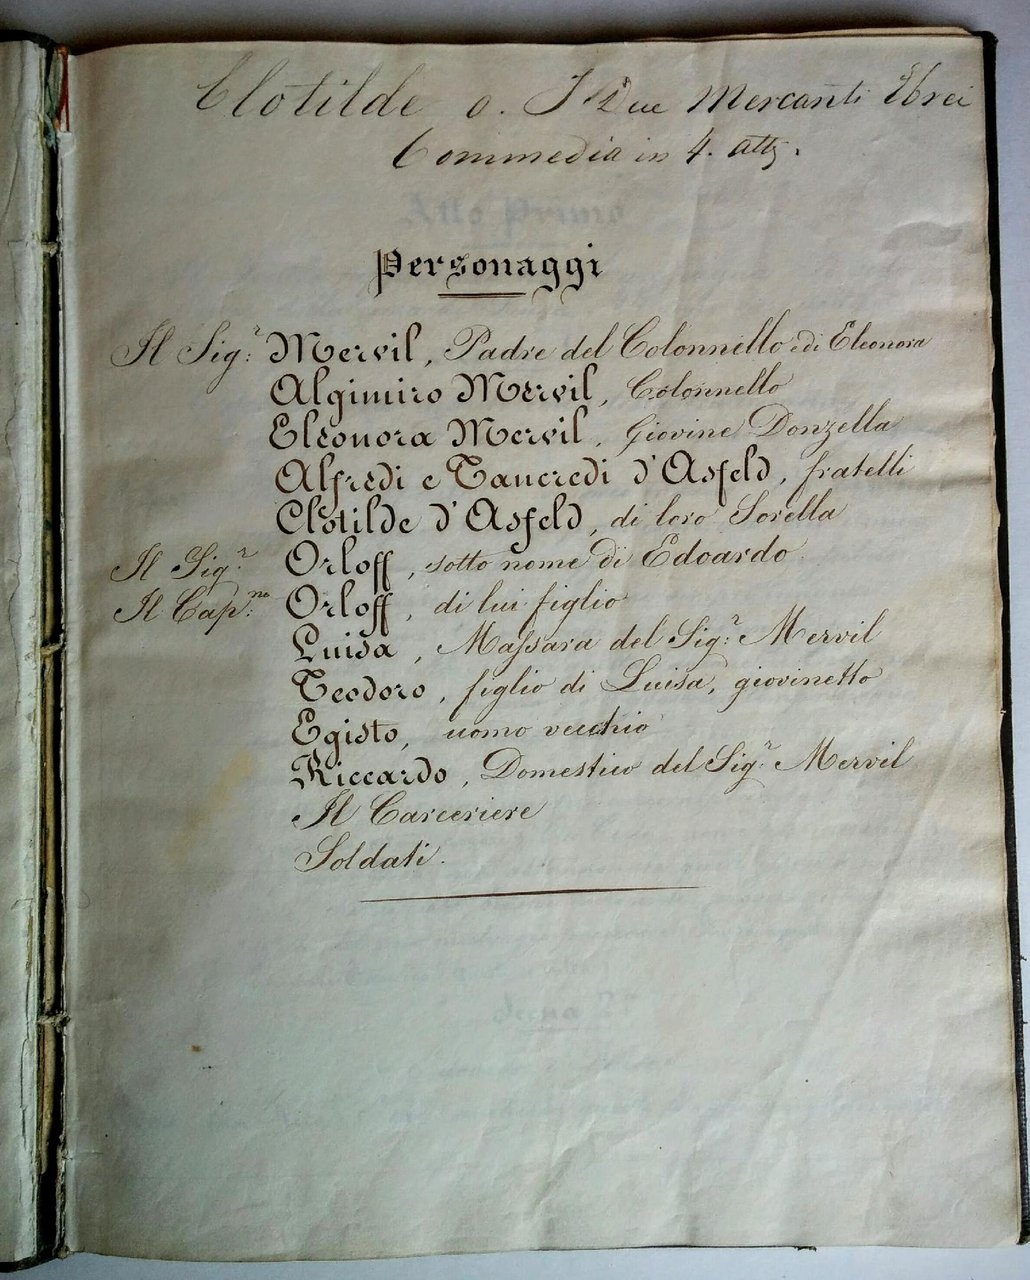 Clotilde o. I Due Mercanti Ebrei
Commedia in 4. atti.
Personaggi
Il Sig.r Mervil, Padre del Colonnello e di Eleonora
Algimiro Mervil, Colonnello
Eleonora Mervil, Giovine Donzella
Alfredi e Tancredi d'Asfeld, fratelli
Clotilde d'Asfeld, di loro Sorella
Il Sig.r Orloff, sotto nome di Edoardo
Il Cap.no Orloff, di lui figlio
Luisa, Massara del Sig.r Mervil
Teodoro, figlio di Luisa, giovinetto
Egisto, uomo vecchio
Riccardo, Domestico del Sig.r Mervil
Il Carceriere
Soldati.
Atto Primo
Scena 2.a